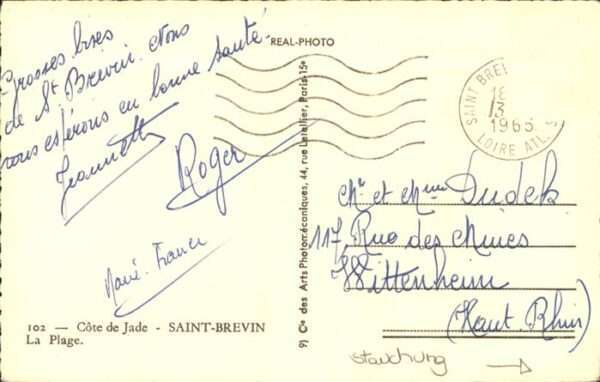 Grosses bises
de St Brévin. Nous
vous espérons en bonne santé.
Jeannette
Roger
Marie-France
102 — Côte de Jade - SAINT-BREVIN
La Plage.
REAL-PHOTO
9) Cie des Arts Photomécaniques, 44, rue Letellier, Paris-15e
SAINT BREV
18
13
1965
LOIRE ATL.
Mr et Mme Dudek
117, Rue des Mines
Wittenheim
(Haut Rhin)
Stauchung →